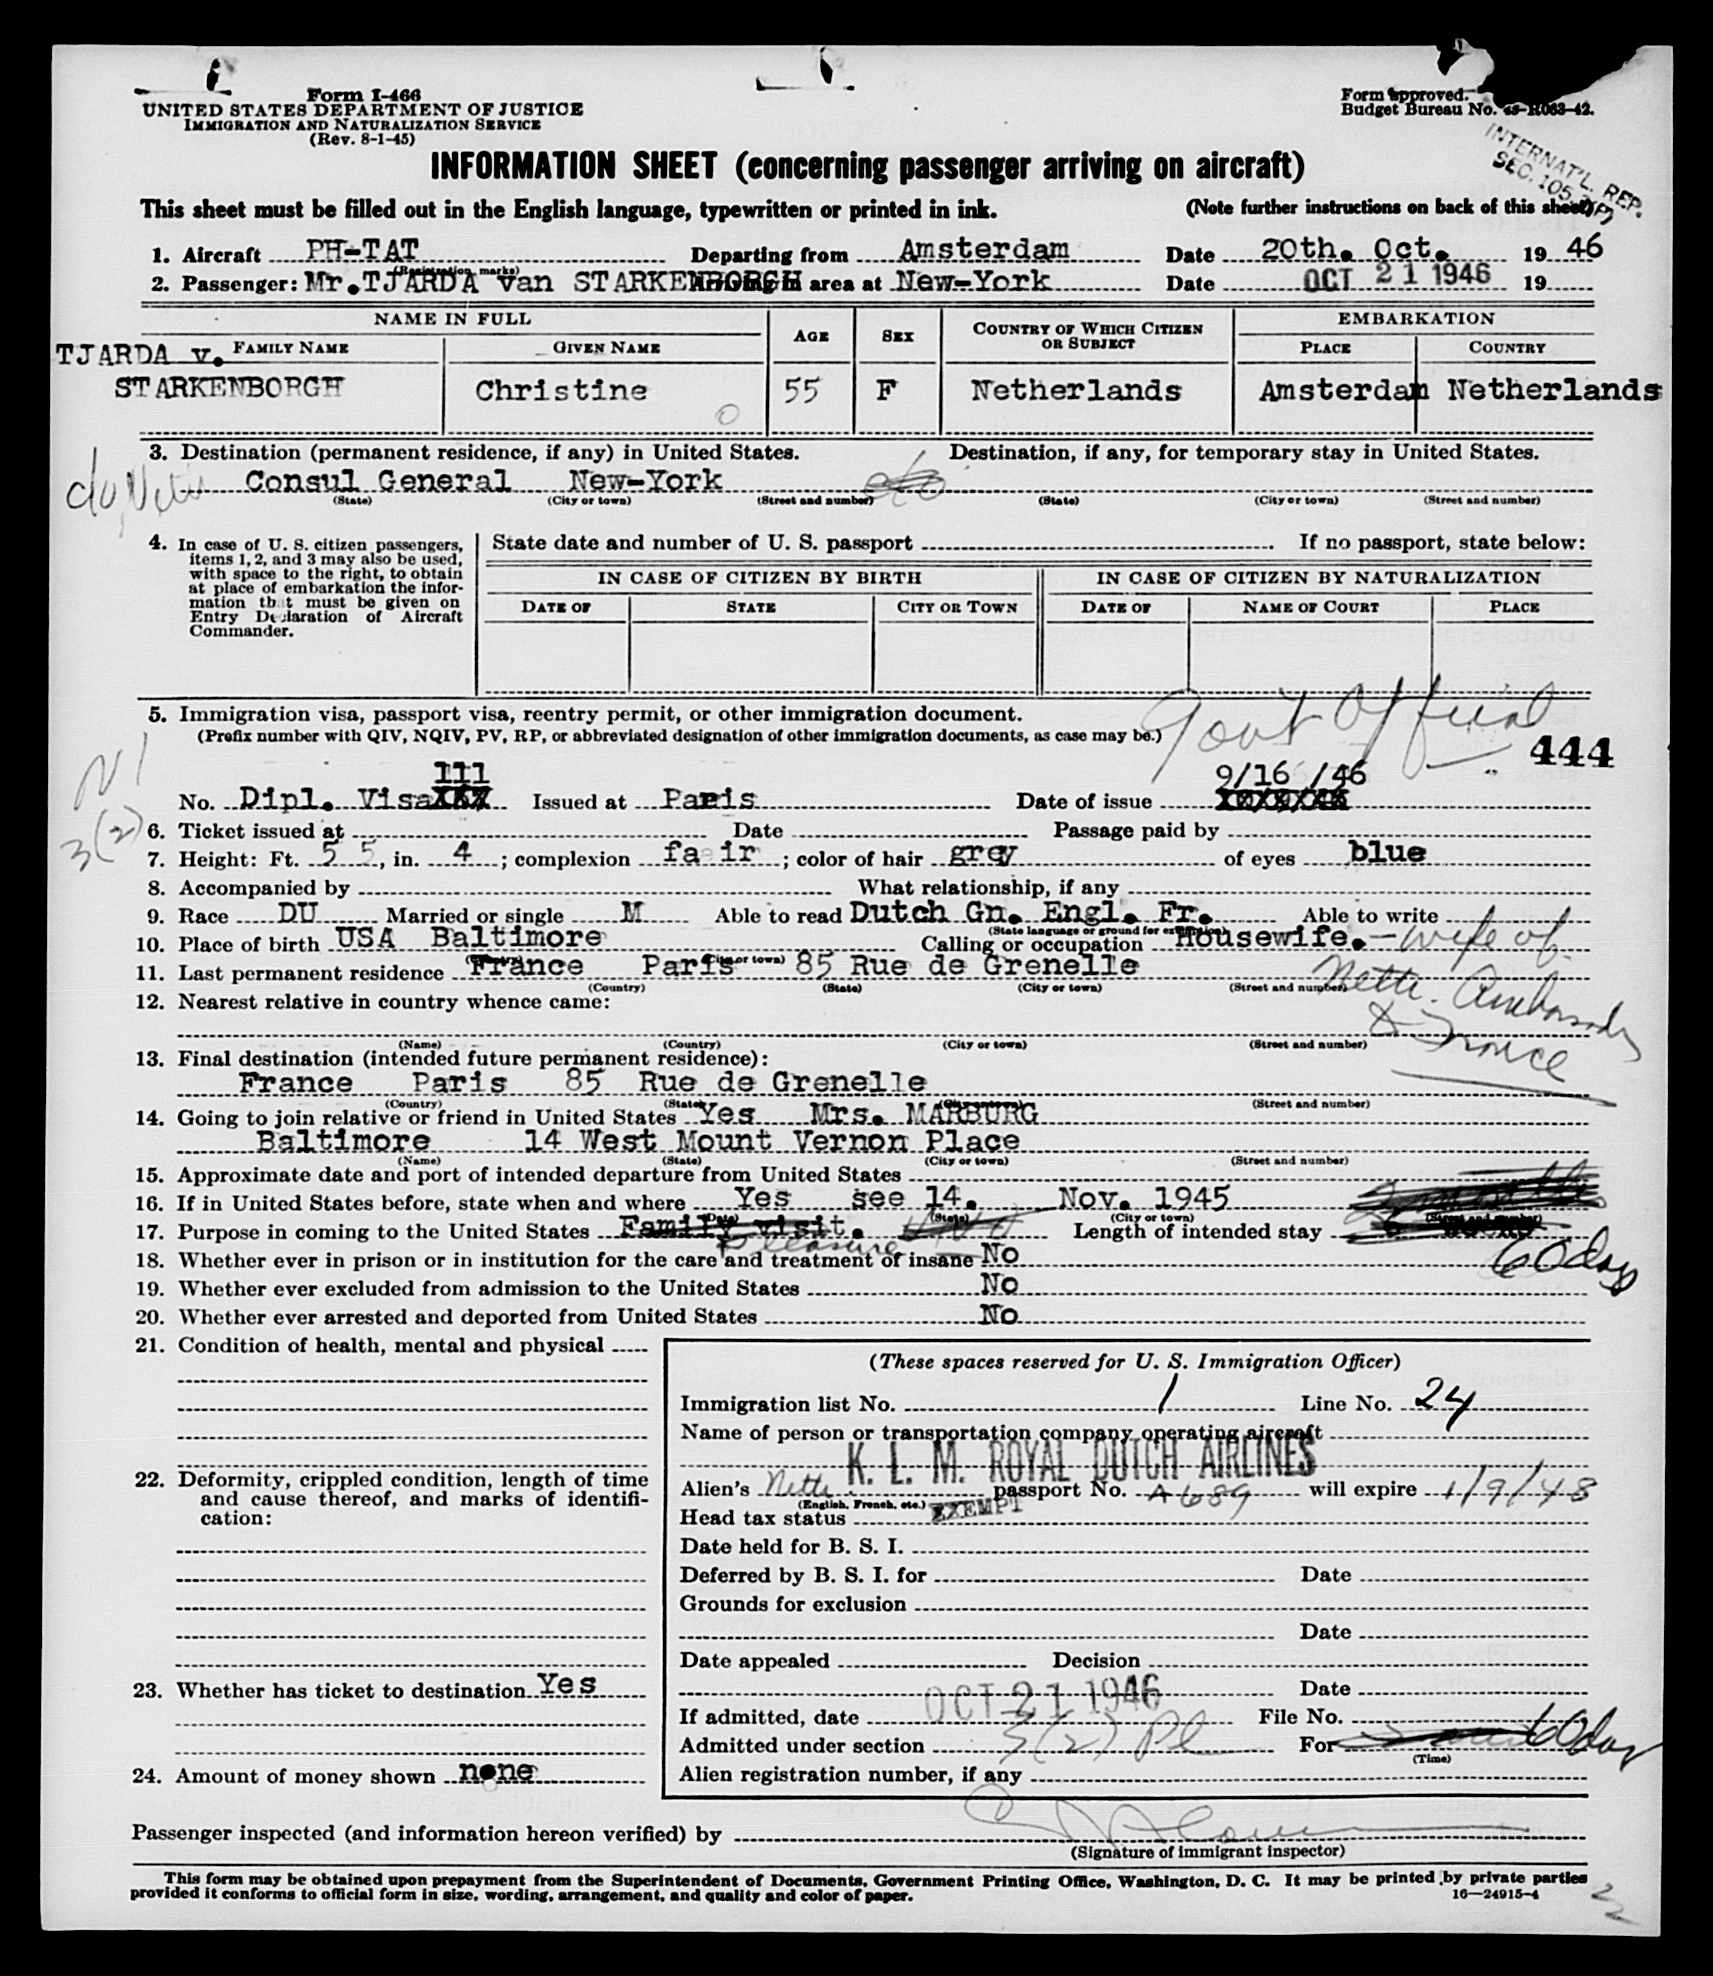 Form I-466
UNITED STATES DEPARTMENT OF JUSTICE
IMMIGRATION AND NATURALIZATION SERVICE
(Rev. 8-1-45)
Form approved.
Budget Bureau No.
INTERNAT'L. REP.
INFORMATION SHEET (concerning passenger arriving on aircraft)
This sheet must be filled out in the English language, typewritten or printed in ink. (Note further instructions on back of this sheet)
1. Aircraft PH-TAT Departing from Amsterdam Date 20th. Oct. 19 46
(Registration marks)
2. Passenger: Mr. TJARDA van STARKENBORGH area at New-York Date OCT 21 1946 19
NAME IN FULL AGE SEX COUNTRY OF WHICH CITIZEN OR SUBJECT EMBARKATION
FAMILY NAME GIVEN NAME PLACE COUNTRY
TJARDA v.
STARKENBORGH Christine 55 F Netherlands Amsterdam Netherlands
3. Destination (permanent residence, if any) in United States. Destination, if any, for temporary stay in United States.
Consul General New-York
(State) (City or town) (Street and number) (State) (City or town) (Street and number)
4. In case of U. S. citizen passengers, items 1, 2, and 3 may also be used, with space to the right, to obtain at place of embarkation the information that must be given on Entry Declaration of Aircraft Commander.
State date and number of U. S. passport . If no passport, state below:
IN CASE OF CITIZEN BY BIRTH IN CASE OF CITIZEN BY NATURALIZATION
DATE OF STATE CITY OR TOWN DATE OF NAME OF COURT PLACE
5. Immigration visa, passport visa, reentry permit, or other immigration document.
(Prefix number with QIV, NQIV, PV, RP, or abbreviated designation of other immigration documents, as case may be.)
Govt Official
444
111 9/16 /46
No. Dipl. Visa Issued at Paris Date of issue
3(2)
6. Ticket issued at Date Passage paid by
7. Height: Ft. 5 5, in. 4; complexion fair; color of hair grey of eyes blue
8. Accompanied by What relationship, if any
9. Race DU Married or single M Able to read Dutch Gn. Engl. Fr. Able to write
(State language or ground for exemption)
10. Place of birth USA Baltimore Calling or occupation Housewife. - wife of
Neth. Ambassador
to France
11. Last permanent residence France Paris 85 Rue de Grenelle
(Country) (State) (City or town) (Street and number)
12. Nearest relative in country whence came:
(Name) (Country) (City or town) (Street and number)
13. Final destination (intended future permanent residence):
France Paris 85 Rue de Grenelle
(Country) (State) (City or town) (Street and number)
14. Going to join relative or friend in United States Yes Mrs. MARBURG
Baltimore 14 West Mount Vernon Place
(Name) (State) (City or town) (Street and number)
15. Approximate date and port of intended departure from United States
16. If in United States before, state when and where Yes see 14. Nov. 1945
(Date) (State) (City or town) (Street and number)
17. Purpose in coming to the United States Family visit. Length of intended stay
Pleasure 60 days
18. Whether ever in prison or in institution for the care and treatment of insane No
19. Whether ever excluded from admission to the United States No
20. Whether ever arrested and deported from United States No
21. Condition of health, mental and physical
22. Deformity, crippled condition, length of time and cause thereof, and marks of identification:
23. Whether has ticket to destination Yes
24. Amount of money shown none
(These spaces reserved for U. S. Immigration Officer)
Immigration list No. 1 Line No. 24
Name of person or transportation company operating aircraft
K. L. M. ROYAL DUTCH AIRLINES
Alien's Neth. passport No. A 689 will expire 1/9/48
(English, French, etc.)
Head tax status EXEMPT
Date held for B. S. I.
Deferred by B. S. I. for Date
Grounds for exclusion
Date
Date appealed Decision
Date
If admitted, date OCT 21 1946 File No.
Admitted under section 3(2) Pl For 60 day
(Time)
Alien registration number, if any
Passenger inspected (and information hereon verified) by
(Signature of immigrant inspector)
This form may be obtained upon prepayment from the Superintendent of Documents, Government Printing Office, Washington, D. C. It may be printed by private parties
provided it conforms to official form in size, wording, arrangement, and quality and color of paper. 16—24915-4